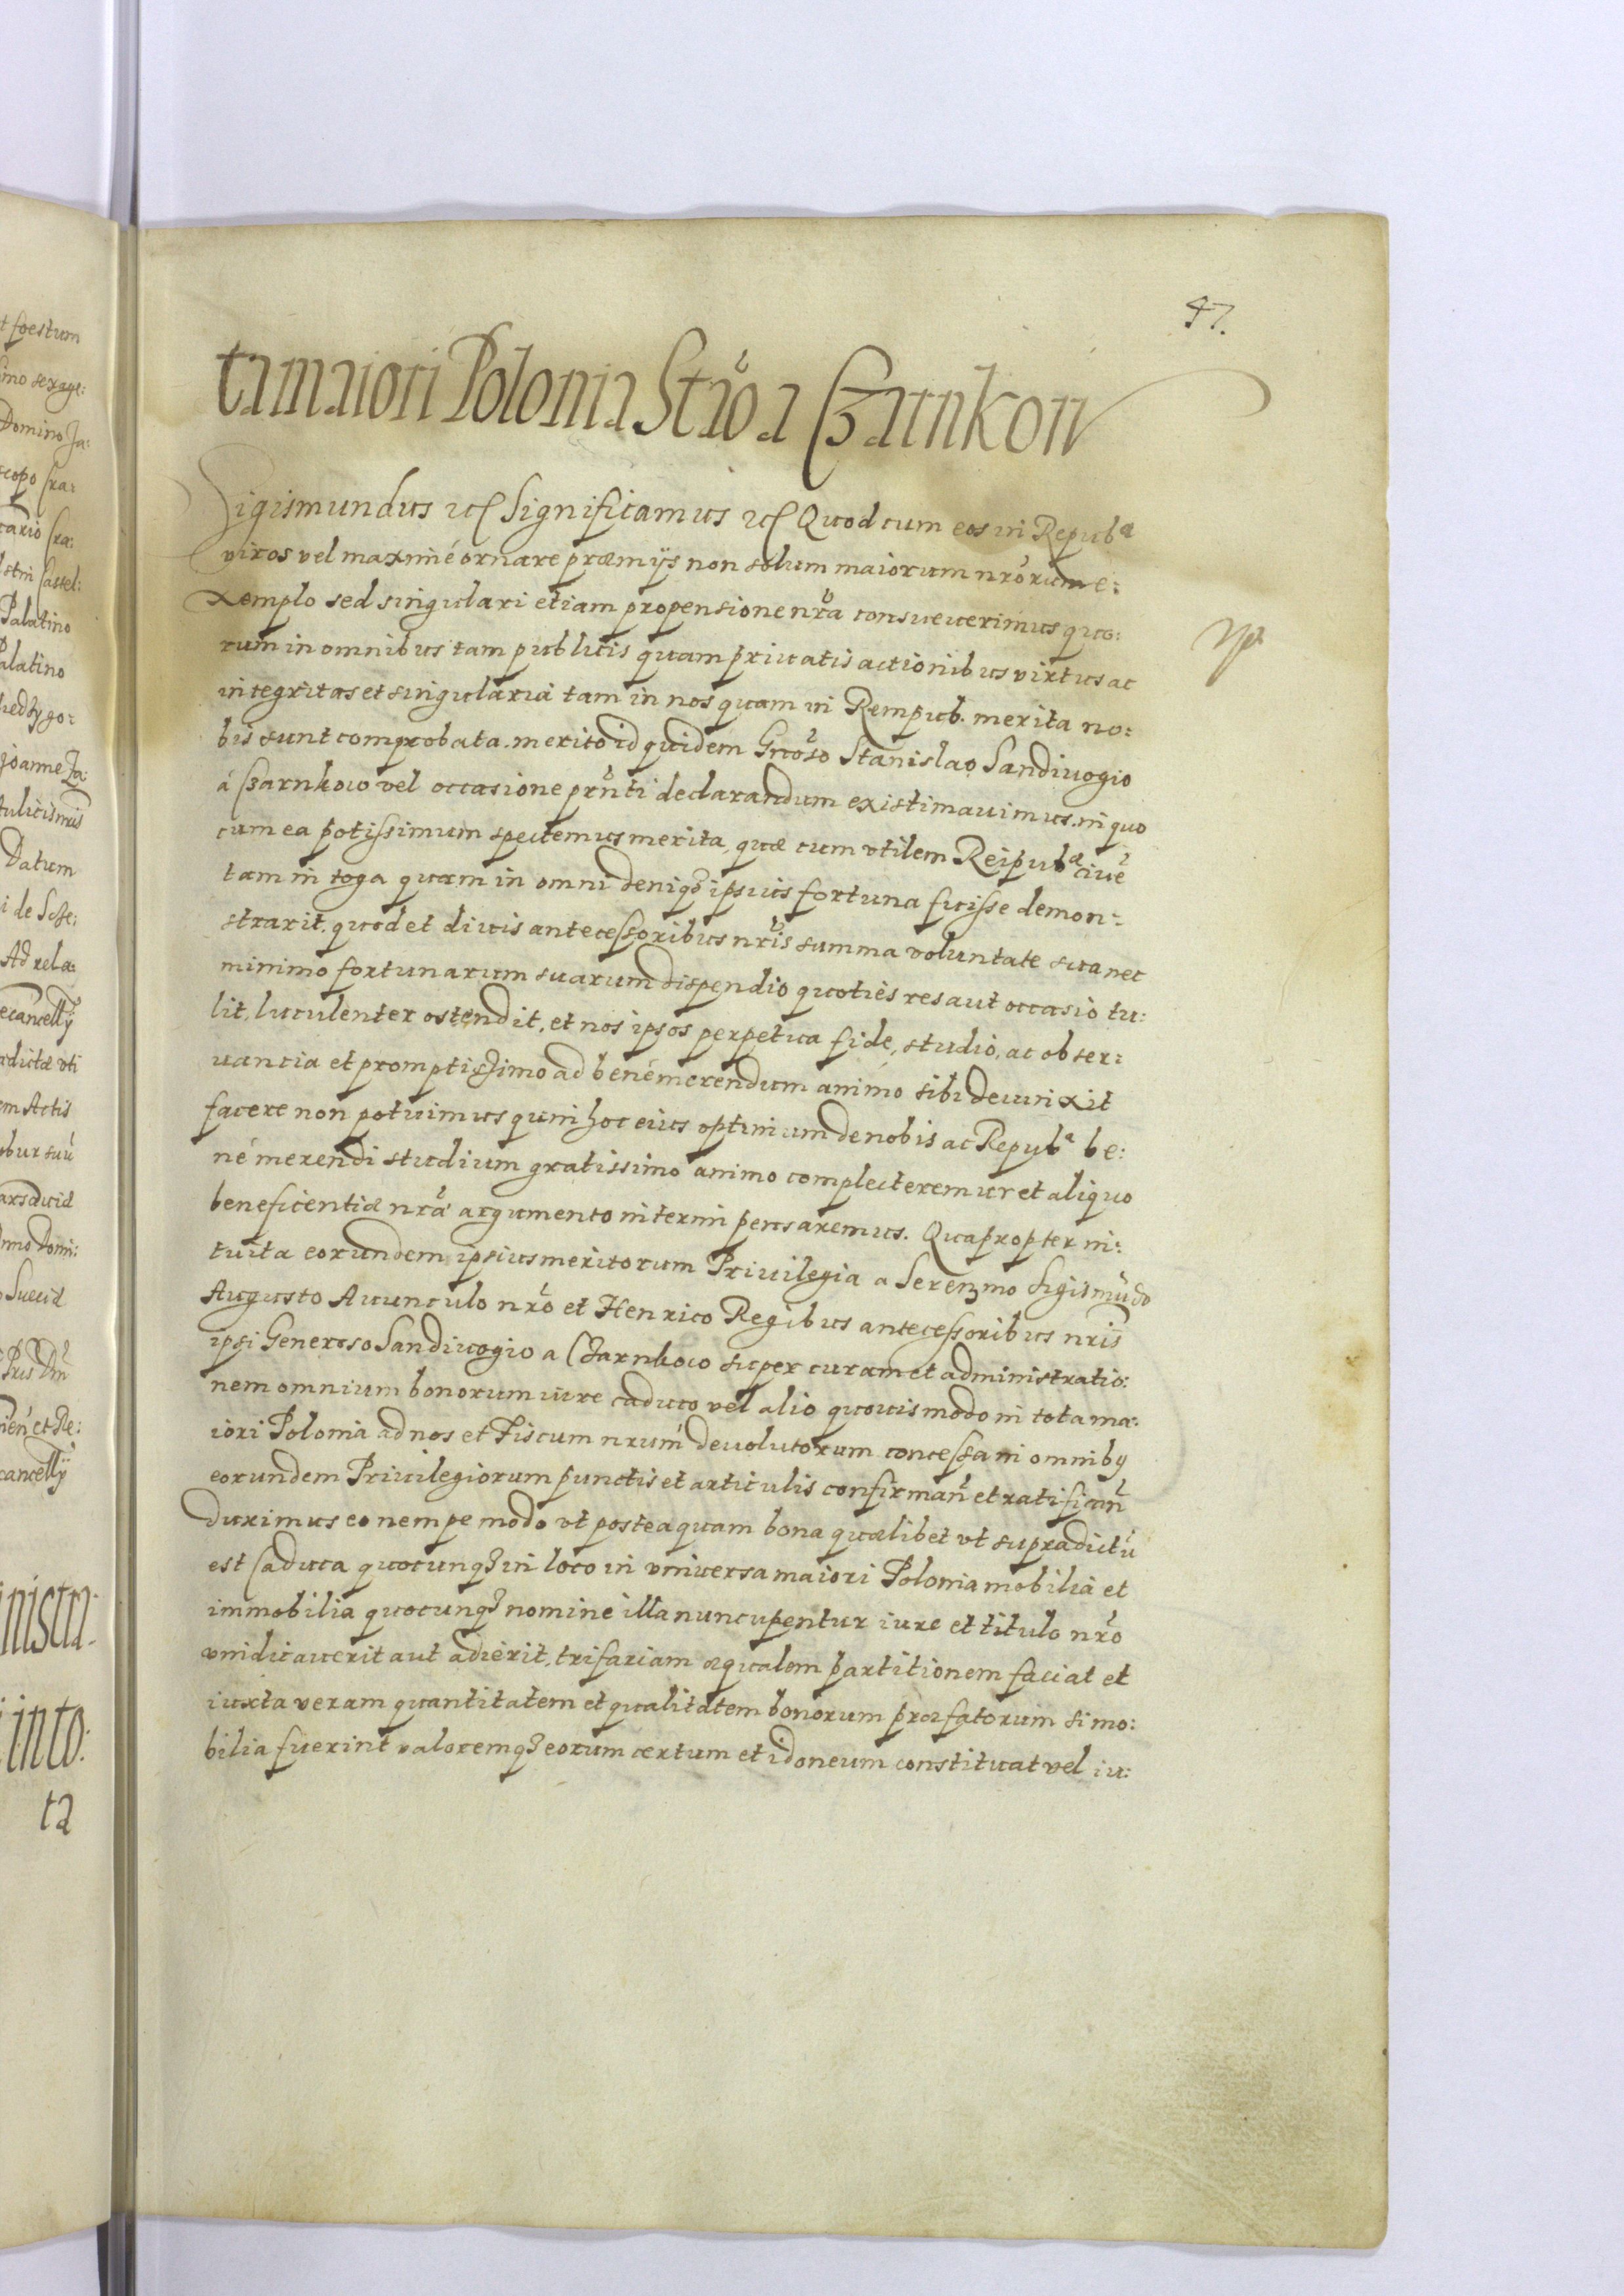 47.
ta maiori Polonia Stao a Czarnkow
Sigismundus etc Significamus etc Quod cum eos in Repub^a
viros vel maximé ornare præmijs non solum maiorum nrorum e:
xemplo sed singulari etiam propensione nra consueuerimus quo:
rum in omnibus tam publicis quam priuatis actionibus virtus ac
integritas et singularia tam in nos quam in Rempub. merita no:
bis sunt comprobata. merito id quidem Gnoso Stanislao Sandiuogio
á Czarnkow vel occasione prnti declarandum existimauimus. in quo
cum ea potissimum spectemus merita, quæ cum vtilem Reipub^æ ciué
tam in toga quam in omni deniq3 ipsius fortuna fuisse demon:
strarit. quod et diuis antecessoribus nris summa voluntate sua nec
minimo fortunarum suarum dispendio quoties res aut occasio tu:
lit, luculenter ostendit, et nos ipsos perpetua fide, studio, ac obser:
uancia et promptissimo ad bené merendum animo sibi deuinxit
facere non potuimus quin hoc eius optimum de nobis ac Repub^a be:
né merendi studium gratissimo animo complecteremur et aliquo
beneficentiæ nra argumento interim pensaremus. Quapropter in:
tuita eorundem ipsius meritorum Priuilegia a Seren3mo Sigismudo
Augusto Auunculo nro et Henrico Regibus antecessoribus nris
ipsi Generoso Sandiuogio a Czarnkow super curam et administratio:
nem omnium bonorum iure caduco vel alio quouis modo in tota ma:
iori Polonia ad nos et Fiscum nrum deuolutorum concessa in omnibus
eorundem Priuilegiorum punctis et articulis confirman et ratifican
duximus eo nempe modo vt posteaquam bona quælibet vt supradictu
est Caduca quocunq3 in loco in vniuersa maiori Polonia mobilia et
immobilia quocunq3 nomine illa nuncupentur iure et titulo nro
vindicauerit aut adierit, trifariam æqualem partitionem faciat et
iuxta veram quantitatem et qualitatem bonorum præfatorum si mo:
bilia fuerint valoremq3 eorum certum et idoneum constituat vel iu: